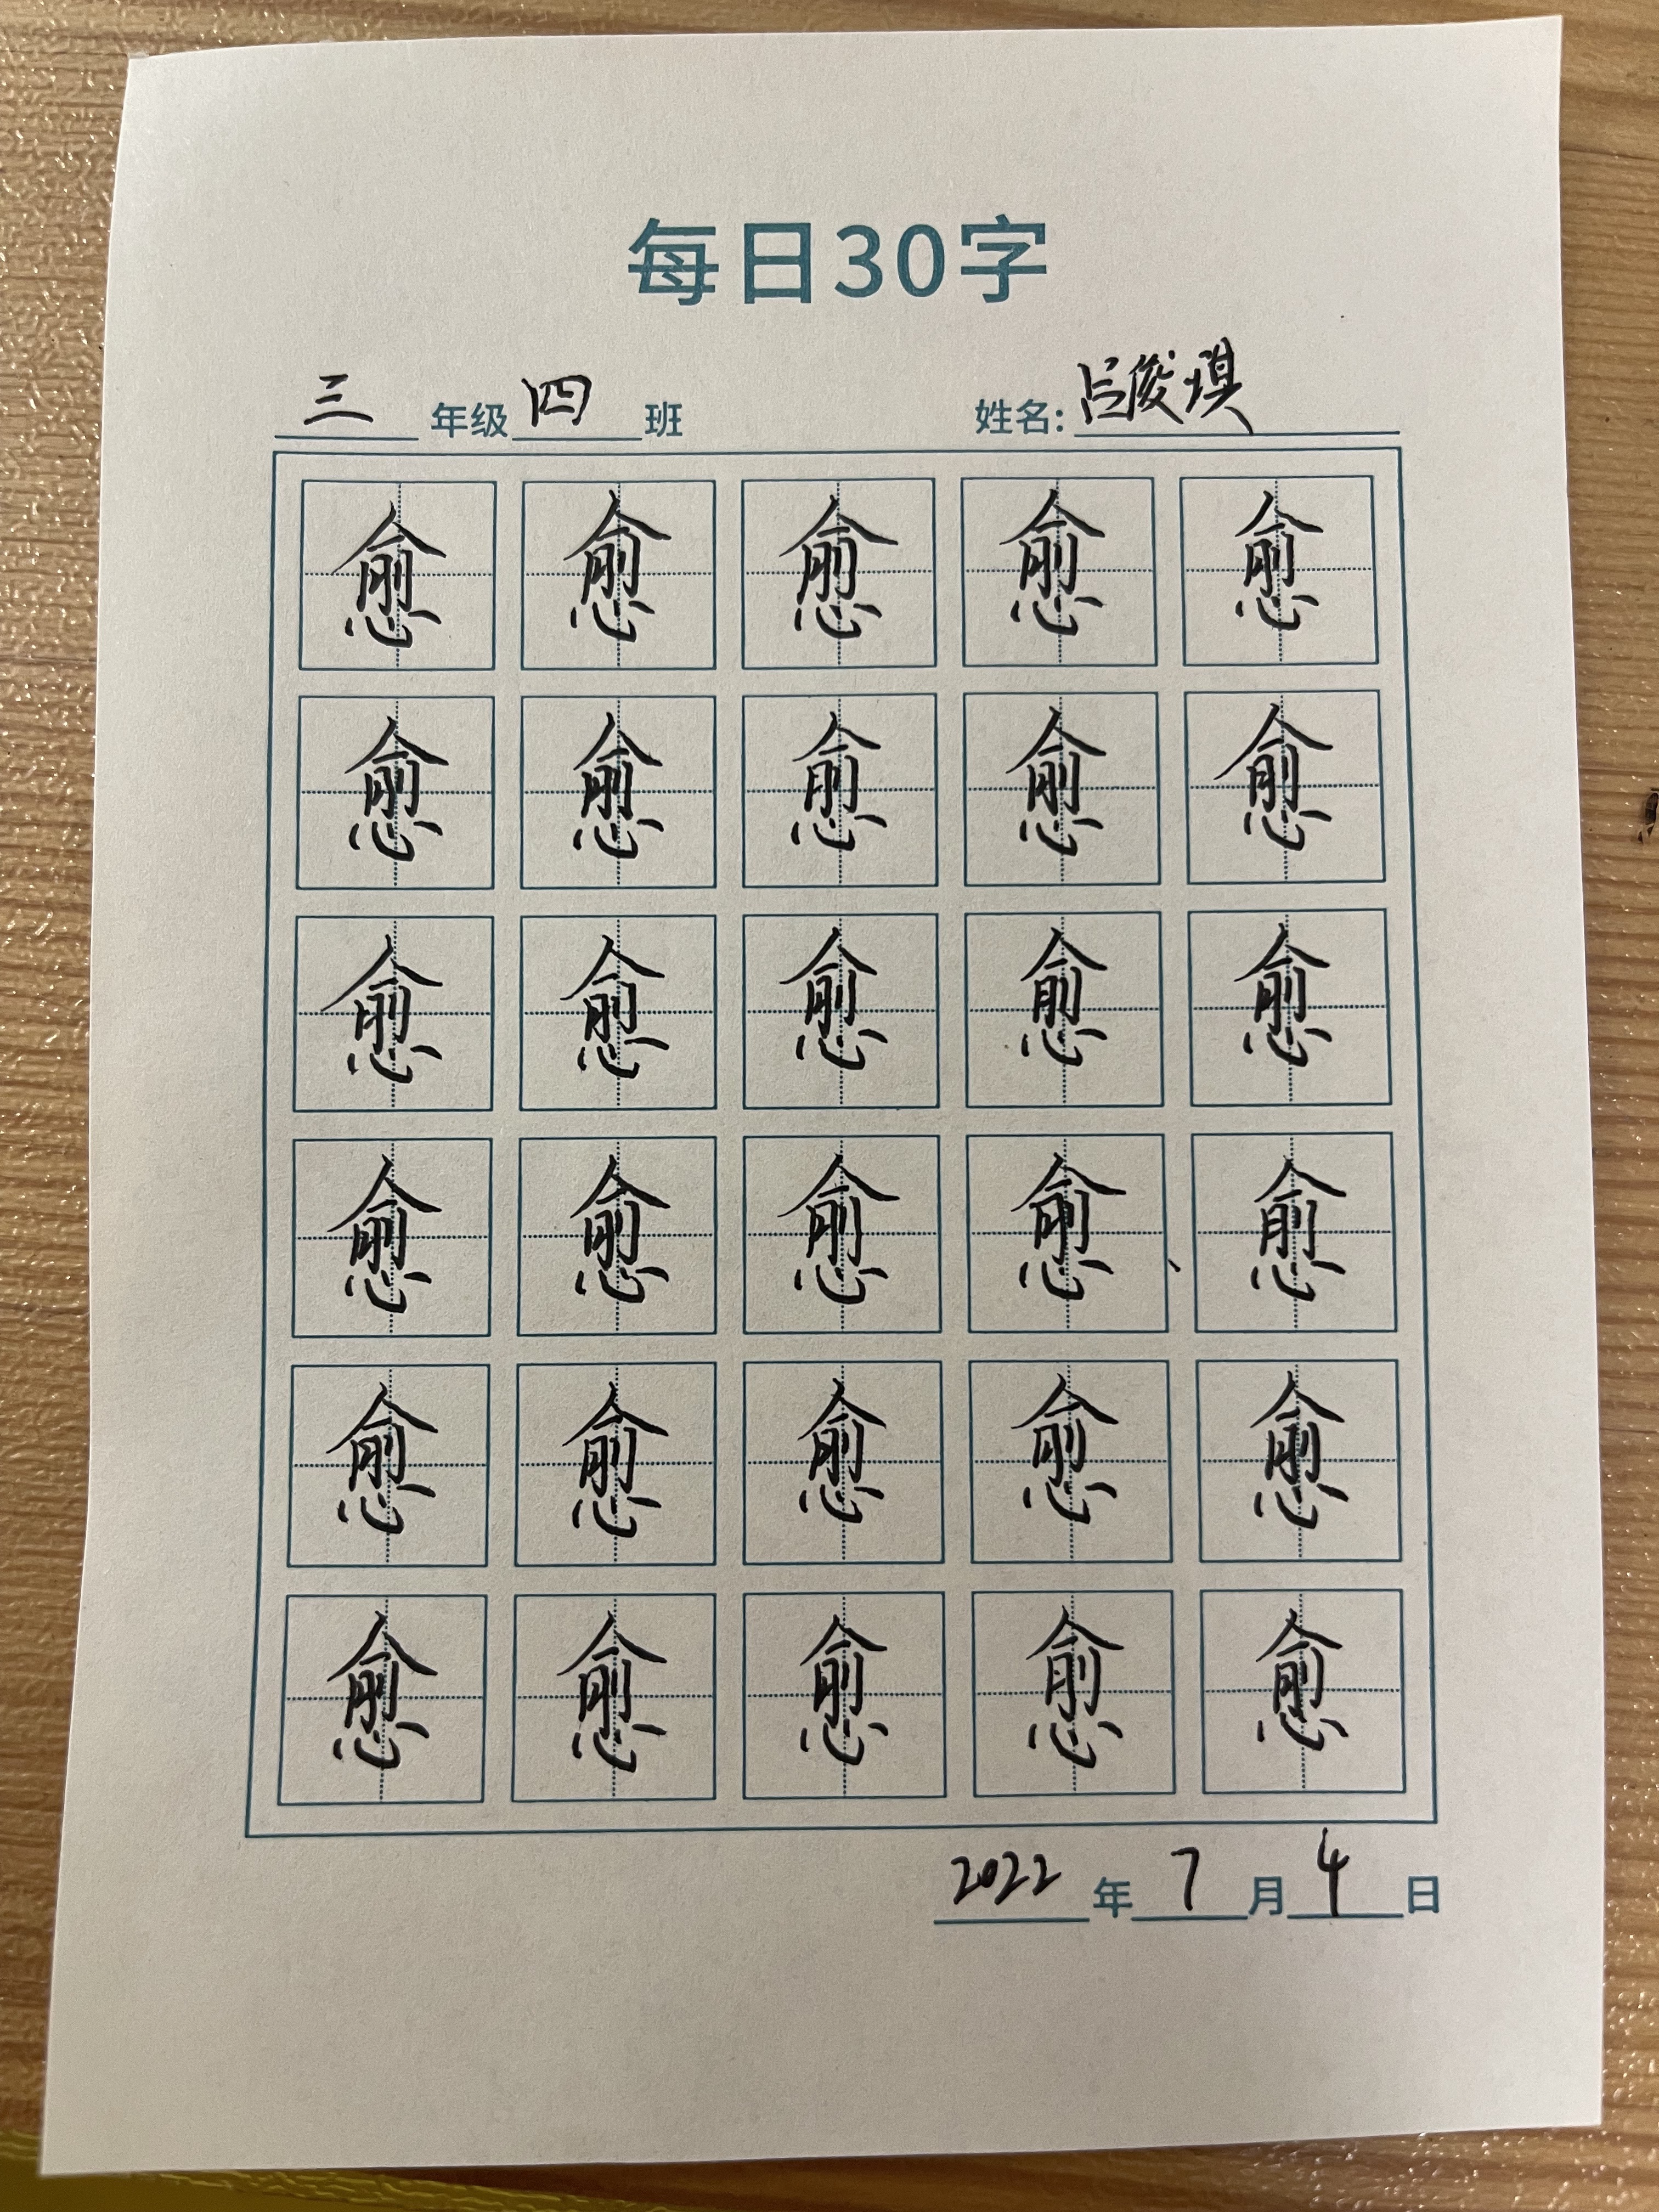 每日30字
三年级四班 姓名:吕俊琪
愈愈愈愈愈
愈愈愈愈愈
愈愈愈愈愈
愈愈愈愈愈
愈愈愈愈愈
愈愈愈愈愈
2022年7月4日